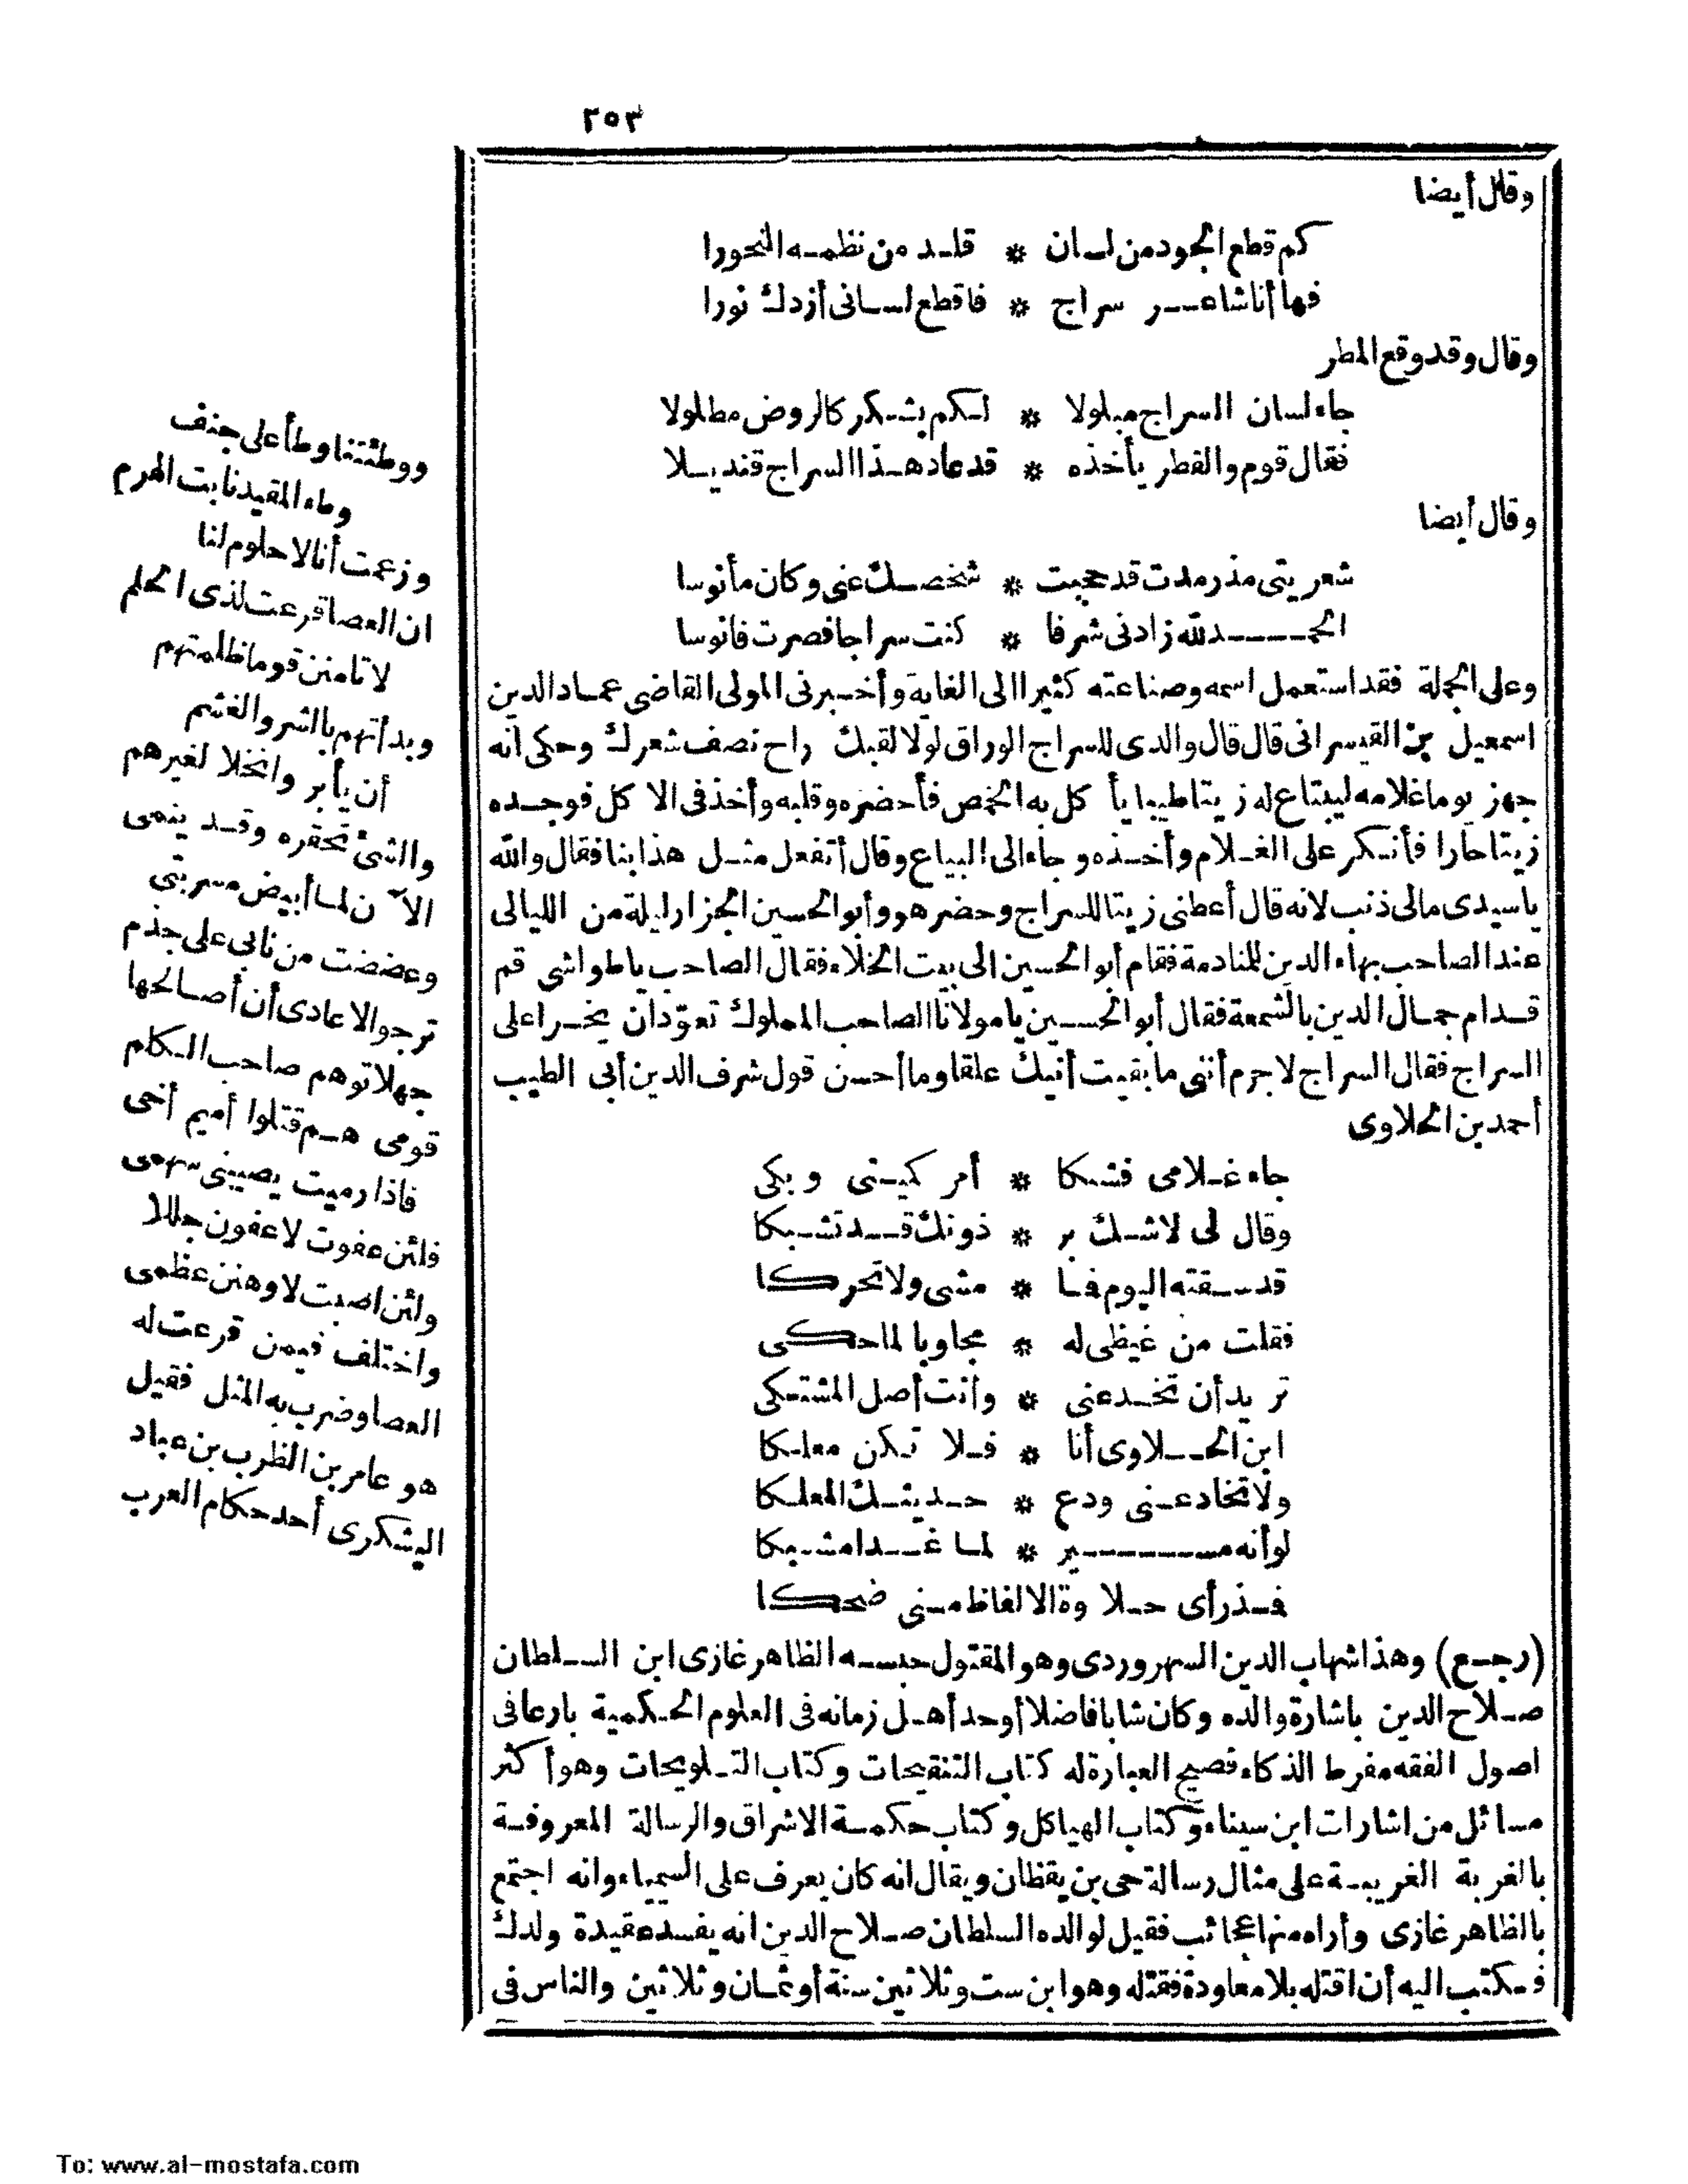 ٢٥٣
وقال أيضا
كم قطع الجود من لسان * قلد من نظمه النحورا
فها أنا شاعر سراج * فاقطع لسانى أزدك نورا
وقال وقد وقع المطر
جاء لسان السراج مبلولا * لكم بشكر كالروض مطلولا
فقال قوم والقطر يأخذه * قد عاد هذا السراج قنديلا
وقال أيضا
شعريتى مذ رمدت قد حجبت * شخصك عنى وكان مأنوسا
الحمد لله زادنى شرفا * كنت سراجا فصرت فانوسا
وعلى الجملة فقد استعمل اسمه وصناعته كثيرا الى الغاية وأخبرنى المولى القاضى عماد الدين
اسمعيل بن القيسرانى قال قال والدى للسراج الوراق لولا لقبك راح نصف شعرك وحكى أنه
جهز يوما غلامه ليبتاع له زيتا طيبا يأكل به الخمص فأحضره وقلبه وأخذ فى الاكل فوجده
زيتا حارا فأنكر على الغلام وأخذه وجاء الى البياع وقال أتفعل مثل هذا بنا فقال والله
ياسيدى مالى ذنب لانه قال أعطنى زيتا للسراج وحضر هو وأبو الحسين الجزار ليلة من الليالى
عند الصاحب بهاء الدين للمنادمة فقام أبو الحسين الى بيت الخلاء فقال الصاحب ياطواشى قم
قدام جمال الدين بالشمعة فقال أبو الحسين يا مولانا الصاحب المملوك تعوّد ان يخرا على
السراج فقال السراج لاجرم أننى ما بقيت أنيك علقا وما أحسن قول شرف الدين أبى الطيب
أحمد بن الحلاوى
جاء غلامى فشكا * أمر كميتى وبكى
وقال لى لاشك بر * ذونك قد تشبكا
قد سقته اليوم فما * مشى ولا تحركا
فقلت من غيظى له * مجاوبا لما حكى
تريد أن تخدعنى * وأنت أصل المشتكى
ابن الحلاوى أنا * فلا تكن معلكا
ولا تخادعنى ودع * حديثك المعلكا
لو أنه مسير * لما غدا مشبكا
فمذ رأى حلاوة الالفاظ منى ضحكا
(رجع) وهذا شهاب الدين السهروردى وهو المقتول حبسه الظاهر غازى ابن السلطان
صلاح الدين باشارة والده وكان شابا فاضلا أوحد أهل زمانه فى العلوم الحكمية بارعا فى
اصول الفقه مفرط الذكاء فصيح العبارة له كتاب التنقيحات وكتاب التلويحات وهو أكثر
مسائل من اشارات ابن سيناء وكتاب الهياكل وكتاب حكمة الاشراق والرسالة المعروفة
بالغربة الغريبة على مثال رسالة حى بن يقظان ويقال انه كان يعرف على السيمياء وانه اجتمع
بالظاهر غازى وأراه منها عجائب فقيل لوالده السلطان صلاح الدين انه يفسد عقيدة ولدك
فكتب اليه أن اقتله بلا معاودة فقتله وهو ابن ست وثلاثين سنة أو ثمان وثلاثين والناس فى
ووطئتنا وطأ على حنف
وطء المقيد نابت الهرم
وزعمت أنا لا حلوم لنا
ان العصا قرعت لذى الحلم
لا تأمنن قوما ظلمتهم
وبدأتهم بالشر والغشم
أن يأبروا نخلا لغيرهم
والشئ تحقره وقد ينمى
الآن لما أبيض مسربتى
وعضضت من نابى على جذم
ترجو الاعادى أن أصالحها
جهلا توهم صاحب الكام
قومى هم قتلوا أميم أخى
فاذا رميت يصيبنى سهمى
فلئن عفوت لاعفون جللا
ولئن اصبت لاوهنن عظمى
واختلف فيمن قرعت له
العصا وضرب به المثل فقيل
هو عامر بن الظرب بن عباد
اليشكرى أحد حكام العرب
To: www.al-mostafa.com